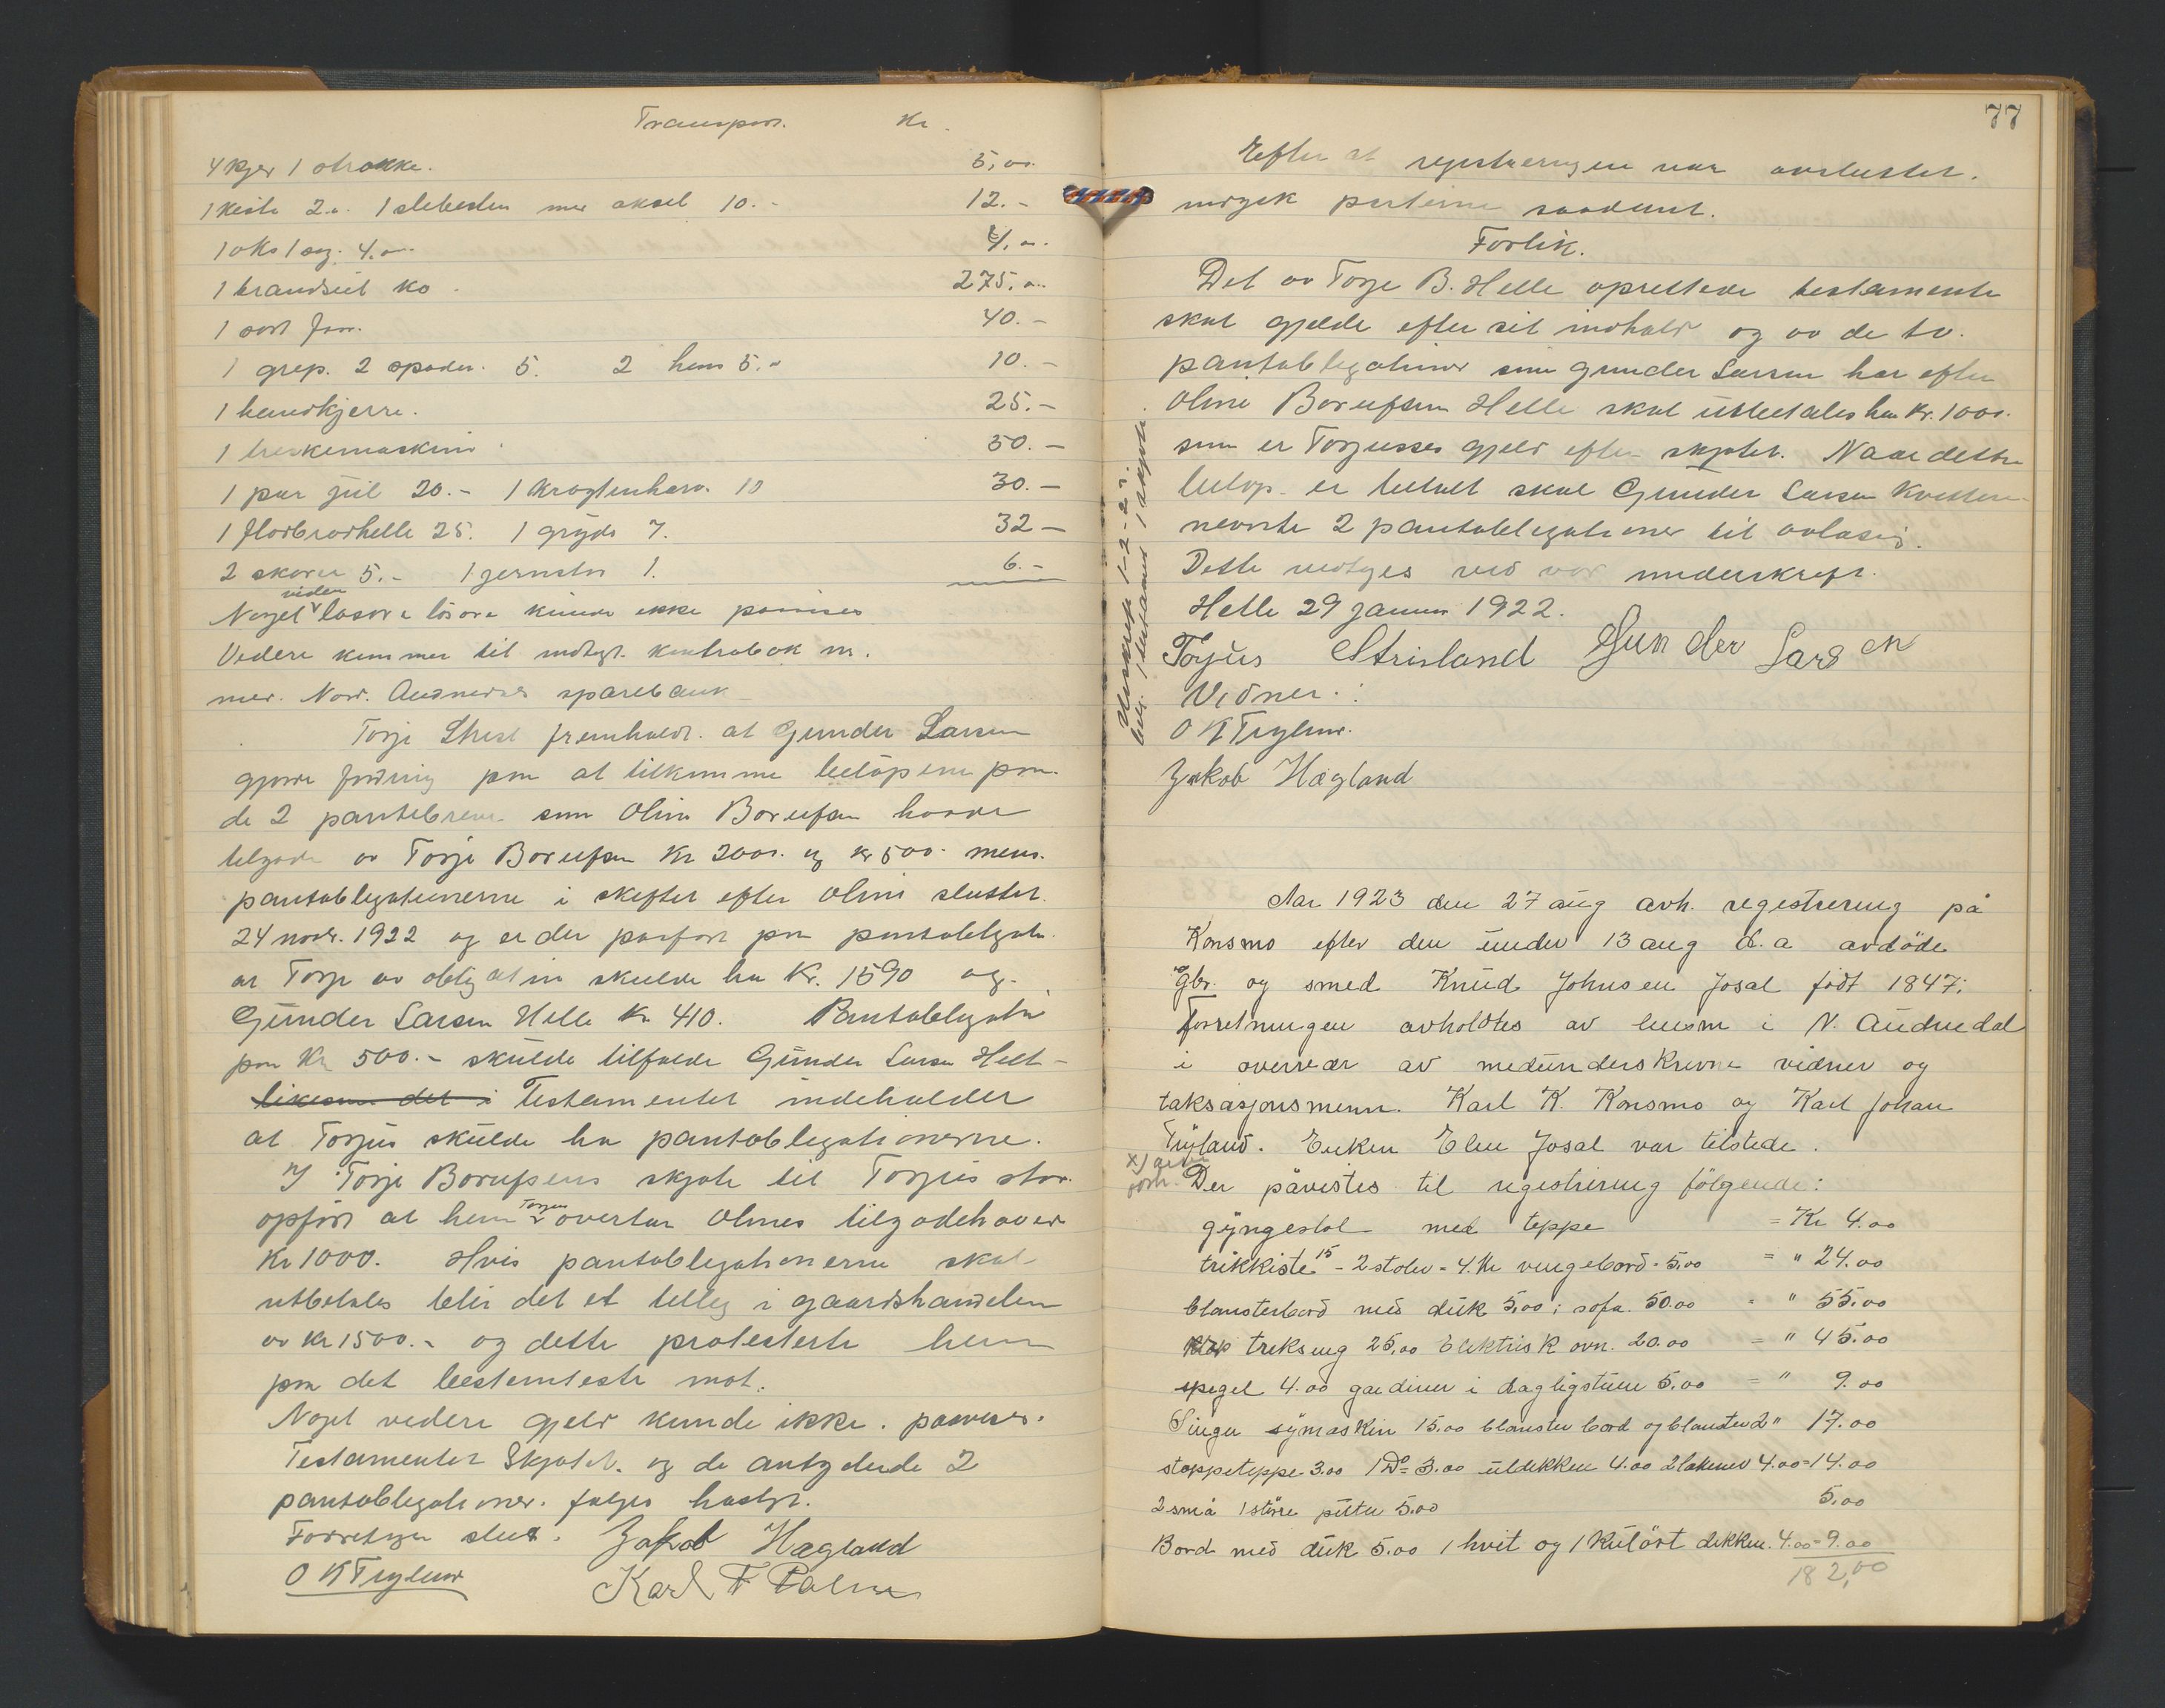 Transport. Kr.
4 kjer 1 strokke. 5,00.
1 kiste 2.00 1 slebesten med aksel 10.- 12.-
1 oks 1 sag. 4.00 4,00.
1 brandseil ko. 275,00.
1 sort faar. 40.-
1 grep. 2 spader. 5. 2 hens 5.- 10.-
1 handkjerre. 25.-
1 treskemaskine 50.-
1 par jul 20.- 1 krogtenharv. 10 30.-
1 flatbrødhelle 25. 1 gryde 7. 32-
2 skover 5.- 1 jernstor 1. 6.-
Noget videre løsøre kunde ikke paavises
Videre kommer til motregn. kontrabok nr.
med Nord. Audnedals sparebank
Torje Strisl fremholdt. at Gunder Larsen
gjorde fordring paa at tilkomme beløpene paa
de 2 pantebreve som Oline Borufsen havde
tilgode av Torje Borufsen Kr 2000. og kr 500. mens.
pantobligationerne i skiftet efter Oline sluttet
24 novbr. 1922 og er der paaført paa pantobligati.
at Torje av obligatin skulde ha Kr. 1590 og.
Gunder Larsen Helle Kr 410. Pantobligatin
paa Kr 500.- skulde tilfalde Gunder Larsen Helle
likesom det i Testamentet indeholder
at Torjus skulde ha pantobligationerne.
I Torje Borufsens skjøte til Torjus staar
opført at hem Torjus overtar Olines tilgodehavende
Kr 1000. Hvis pantobligationerne skal
utbetales blir det et tillæg i gaardshandelen
av kr 1500.- og dette protesterte hem
paa det bestemteste mot.
Noget videre gjeld kunde ikke. paavises.
Testamentet Skjøtet. og de antydede 2
pantobligationer. følges heftgt.
Forretngen slut. Jakob Hægland
O K Tryland Karl F Palm
77
Efter at registreringen var avsluttet.
indgik parterne saadant.
Forlik.
Det av Torje B. Helle oprettede testamente
skal gjelde efter sit indhold og av de to.
pantobligationer som Gunder Larsen har efter
Oline Borufsen Helle skal utbetales ham Kr. 1000.
som er Torjusses gjeld efter skjøtet. Naar dette
beløp er betalt skal Gunder Larsen kvittere
nevnte 2 pantobligationer til avlæsn.
Dette vedtages ved vor underskrift.
Helle 29 januar 1922.
Torjus Strisland Gunder Larsen
Vidner:
O K Tryland.
Jakob Hægland
Utskrift 1-2-23.
bil. 1 testament 1 skjøte.
Aar 1923 den 27 aug avh. registrering på
Konsmo efter den under 13 aug d.a avdöde
gbr. og smed Knud Johnsen Josal födt 1847.
Forretningen avholdtes av lensm i N. Audnedal
i overvær av medunderskrevne vidner og
taksasjonsmenn. Karl K. Konsmo og Karl Johan
Tryland. Enken Elen Josal var tilstede.
Der påvistes til registrering fölgende:
gyngestol med teppe = Kr 4.00
trekkiste 15 - 2 stoler - 4. Kr vengebord - 5.00 = " 24.00
blomsterbord med duk 5,00; sofa. 50.00 = " 55.00
trekseng 25,00 Elektrisk ovn. 20.00 = " 45.00
spegel 4.00 gardiner i dagligstuen 5.00 = " 9.00
Singer symaskin 15.00 blomster bord og blomster 2 " 17.00
stoppeteppe 3.00 1 Do = 3.00 uldekken 4.00 2 lakener 4.00 = 14.00
2 små 1 större puter 5.00 5.00
Bord med duk 5.00 1 hvit og 1 kulört dekken. 4.00 = 9.00
182,00